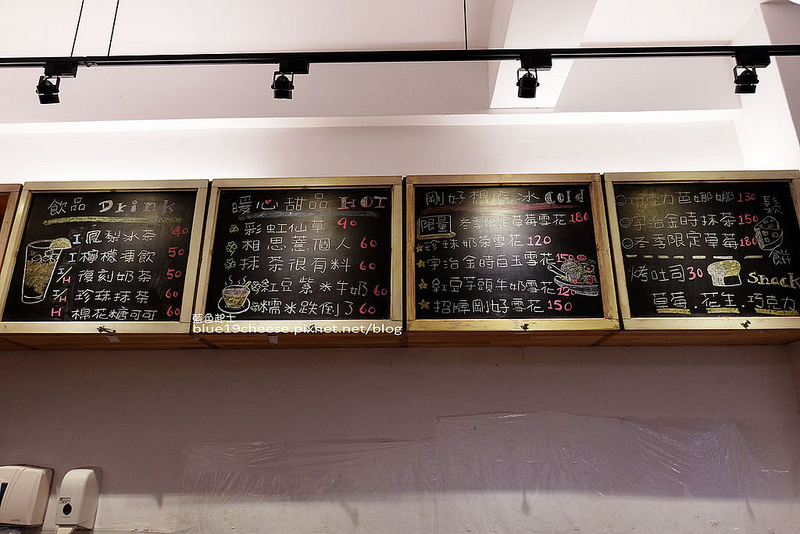 飲品 Drink
I 鳳梨冰茶 40
I 檸檬凍飲 50
I/H 復刻奶茶 50
I/H 珍珠抹茶 60
H 棉花糖可可 60
暖心甜品 HOT
彩虹仙草 90
相思薏個人 60
抹茶很有料 60
紅豆紫米牛奶 60
糯米跌倒了 60
剛好想吃冰 Cold
限量 冬季限定草莓雪花 180
珍珠奶茶雪花 120
宇治金時白玉雪花 150
紅豆芋頭牛奶雪花 120
招牌剛好雪花 150
巧克力芭娜娜 130
宇治金時抹茶 150
冬季限定草莓 180
鬆餅
烤吐司 30
Snack
草莓.花生.巧克力
藍色起士
blue19cheese.pixnet.net/blog